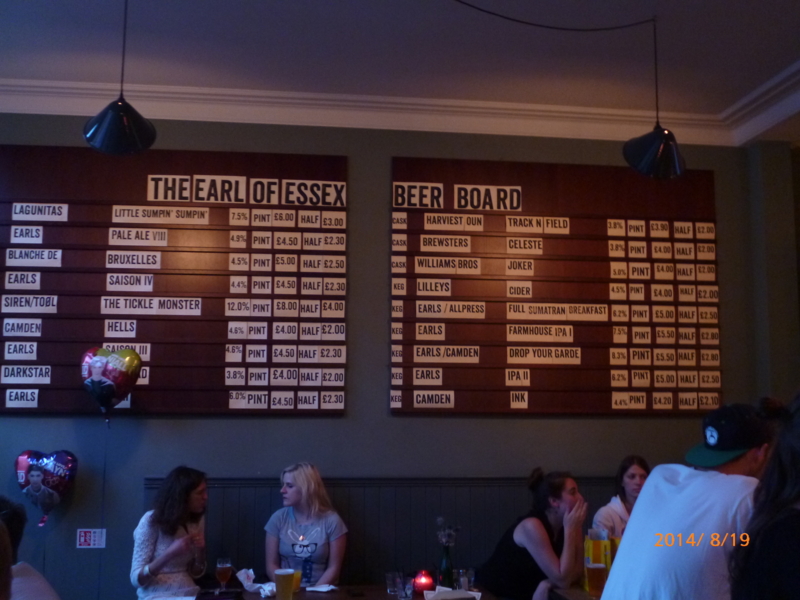 THE EARL OF ESSEX BEER BOARD
LAGUNITAS LITTLE SUMPIN' SUMPIN' 7.5% PINT £6.00 HALF £3.00
EARLS PALE ALE VIII 4.9% PINT £4.50 HALF £2.30
BLANCHE DE BRUXELLES 4.5% PINT £5.00 HALF £2.50
EARLS SAISON IV 4.4% PINT £4.50 HALF £2.30
SIREN/TO∅L THE TICKLE MONSTER 12.0% PINT £8.00 HALF £4.00
CAMDEN HELLS 4.6% PINT £4.00 HALF £2.00
EARLS SAISON III 4.6% PINT £4.50 HALF £2.30
DARKSTAR 3.8% PINT £4.00 HALF £2.00
EARLS 6.0% PINT £4.50 HALF £2.30
CASK HARVIESTOUN TRACK N FIELD 3.8% PINT £3.90 HALF £2.00
CASK BREWSTERS CELESTE 3.8% PINT £4.00 HALF £2.00
CASK WILLIAMS BROS JOKER PINT £4.00 HALF £2.00
KEG LILLEYS CIDER 4.5% PINT £4.00 HALF £2.00
KEG EARLS / ALLPRESS FULL SUMATRAN BREAKFAST 6.2% PINT £5.00 HALF £2.50
KEG EARLS FARMHOUSE IPA I 7.5% PINT £5.50 HALF £2.80
KEG EARLS / CAMDEN DROP YOUR GARDE 8.3% PINT £5.50 HALF £2.80
KEG EARLS IPA II 6.2% PINT £5.00 HALF £2.50
KEG CAMDEN INK 4.4% PINT £4.20 HALF £2.10
2014/ 8/19